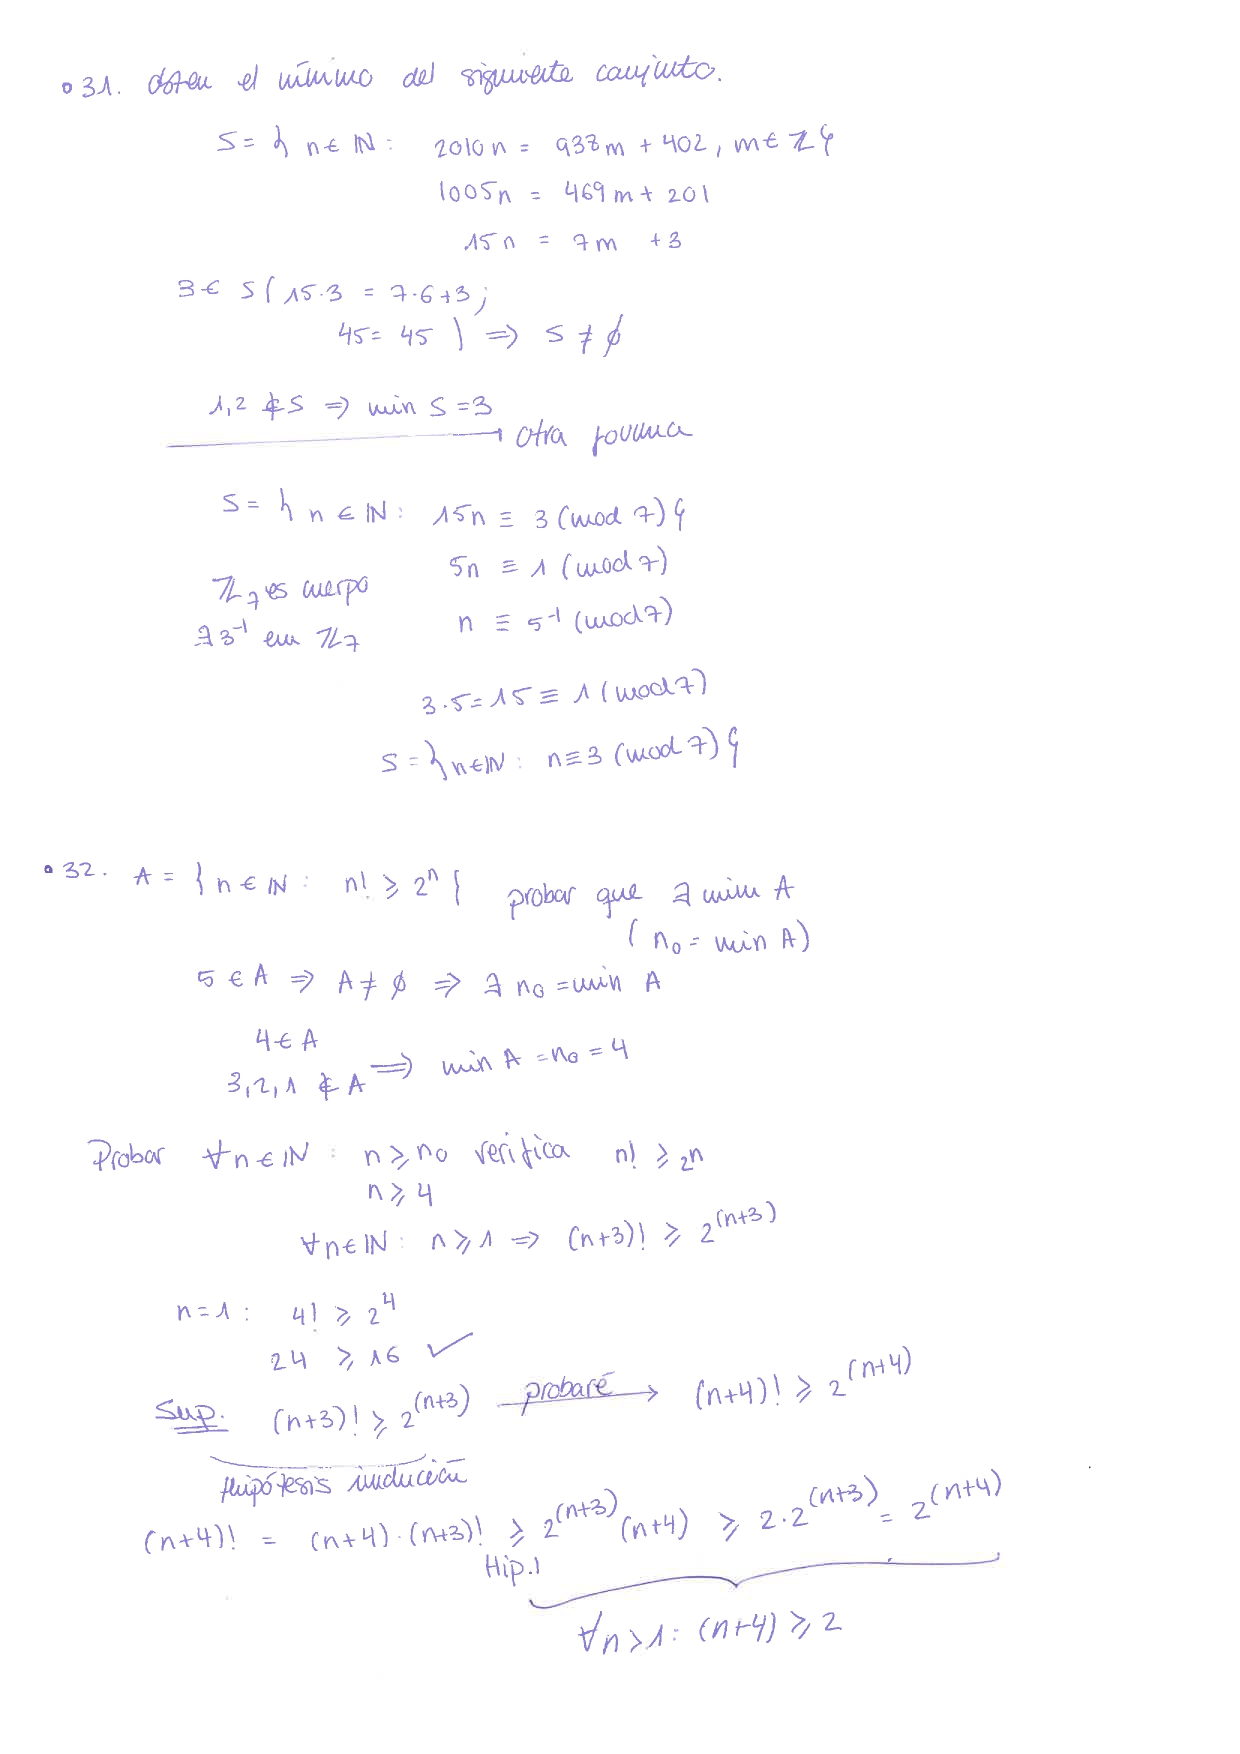 • 31. Obten el mínimo del siguiente conjunto.
S = { n ∈ ℕ : 2010n = 938m + 402, m ∈ ℤ }
1005n = 469m + 201
15n = 7m + 3
3 ∈ S ( 15·3 = 7·6+3;
45 = 45 ) ⇒ S ≠ ∅
1,2 ∉ S ⇒ min S = 3
→ otra forma
S = { n ∈ ℕ : 15n ≡ 3 (mod 7) }
5n ≡ 1 (mod 7)
ℤ₇ es cuerpo
n ≡ 5⁻¹ (mod 7)
∃ 3⁻¹ em ℤ₇
3·5 = 15 ≡ 1 (mod 7)
S = { n ∈ ℕ : n ≡ 3 (mod 7) }
• 32. A = { n ∈ ℕ : n! ≥ 2ⁿ { probar que ∃ mim A
( n₀ = min A )
5 ∈ A ⇒ A ≠ ∅ ⇒ ∃ n₀ = min A
4 ∈ A
3,2,1 ∉ A ⇒ min A = n₀ = 4
Probar ∀n ∈ ℕ : n ≥ n₀ verifica n! ≥ 2ⁿ
n ≥ 4
∀n ∈ ℕ : n ≥ 1 ⇒ (n+3)! ≥ 2^(n+3)
n = 1 : 4! ≥ 2⁴
24 ≥ 16 ✓
Sup. (n+3)! ≥ 2^(n+3) probaré → (n+4)! ≥ 2^(n+4)
Hipótesis inducción
(n+4)! = (n+4)·(n+3)! ≥ 2^(n+3) (n+4) ≥ 2·2^(n+3) = 2^(n+4)
Hip.I
∀n > 1 : (n+4) ≥ 2